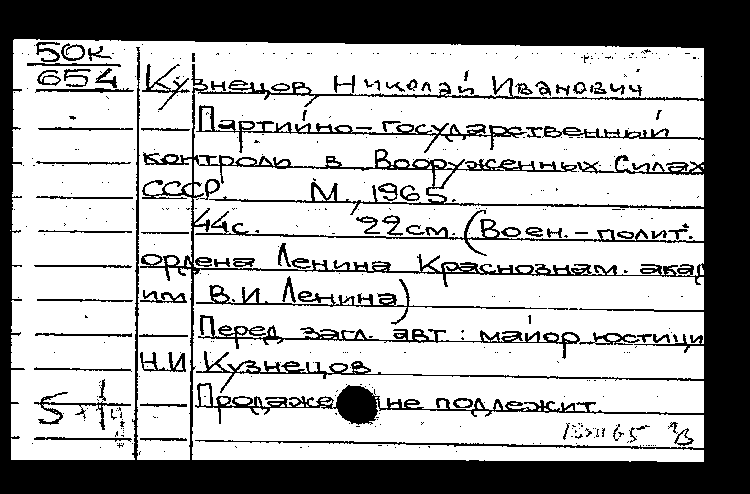 50к
654
Кузнецов, Николай Иванович
Партийно-государственный
контроль в Вооруженных Силах
СССР. М., 1965.
44с. 22см. (Воен.-полит.
ордена Ленина Краснознам. акад
им В.И. Ленина)
Перед загл. авт: майор юстици
Н.И. Кузнецов.
Продаже не подлежит.